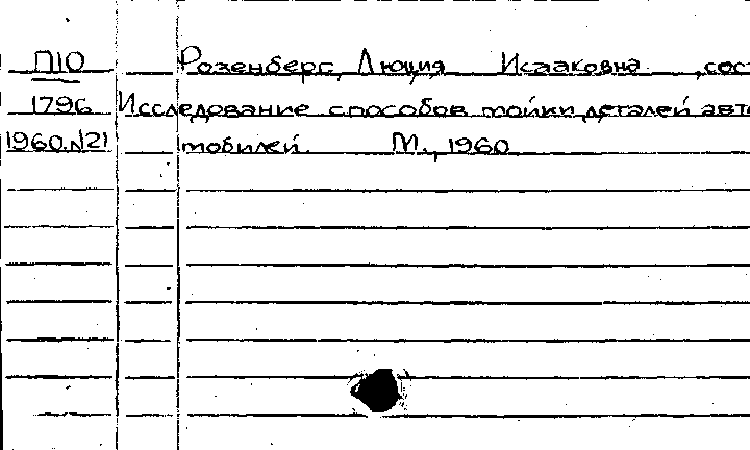 П10 Розенберг, Люция Исааковна, сост
1796 Исследование способов мойки деталей авто
1960.№21 мобилей. М., 1960